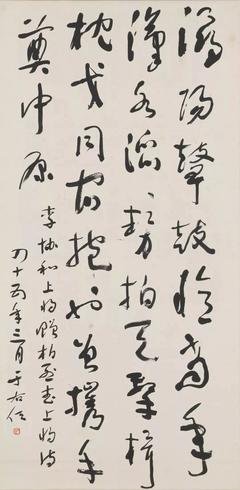 潯陽鼙鼓憶當年
漢水滔〻勢拍天擊楫
枕戈同抱也曾攜手
奠中原
李協和上將贈柏烈武上將詩
四十五年三月 于右任